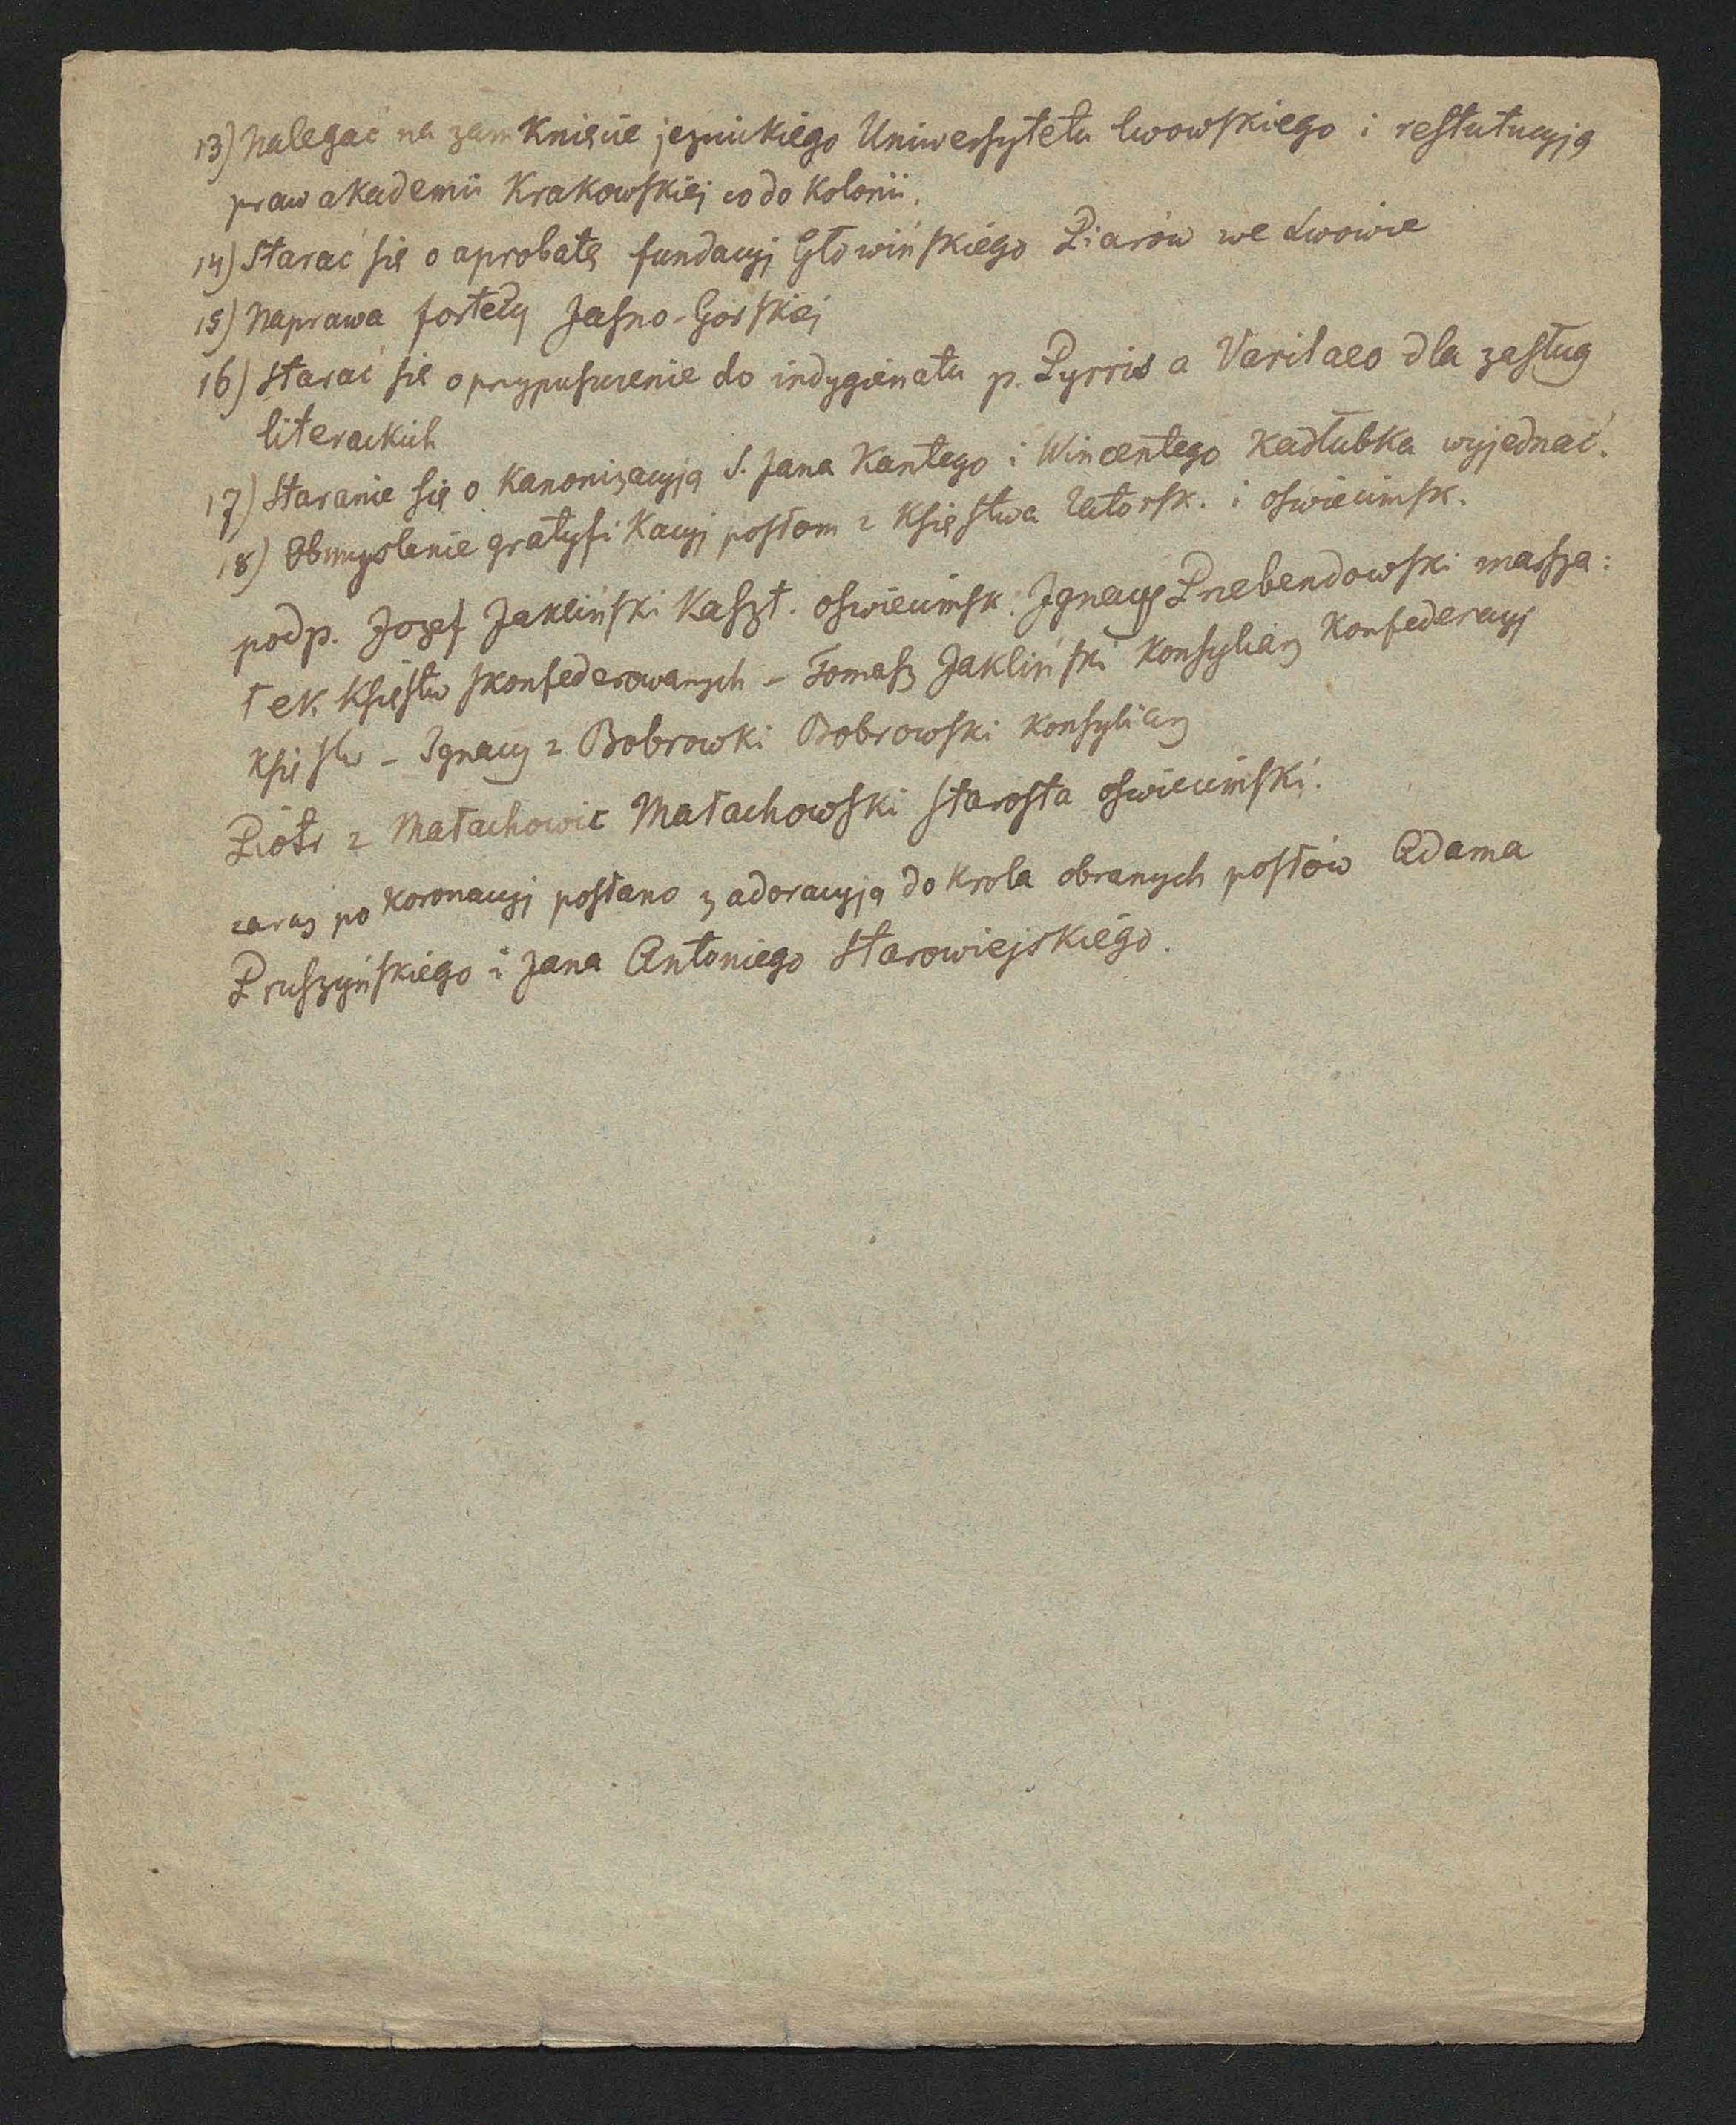 13) Nalegać na zamknięcie jezuickiego Uniwersytetu lwowskiego i restytucyją
praw akademii Krakowskiej co do Kolonii.
14) Starać się o aprobatę fundacyj Głowińskiego Piarów we Lwowie
15) Naprawa fortecy Jasno-Górskiej
16) Starać się o przypuszczenie do indygienatu p. Pyrris a Varilaeo dla zasług
literackich
17) Staranie się o Kanonizacyją S. Jana Kantego i Wincentego Kadłubka wyjednać.
18) Obmyslenie gratyfikacyj posłom z Księstwa Zatorsk. i oswiecimsk.
podp. Jozef Jakliński Kaszt. oswiecimsk. Ignacy Przebendowski marsza:
łek Księstw skonfederowanych – Tomasz Jakliński Konsyliarz Konfederacyj
Księstw – Ignacy z Bobrowki Bobrowski Konsyliarz
Piotr z Małachowic Małachowski starosta oswiecimski.
zaraz po koronacyj posłano z adoracyją do Krola obranych posłów Adama
Pruszyńskiego i Jana Antoniego Starowiejskiego.